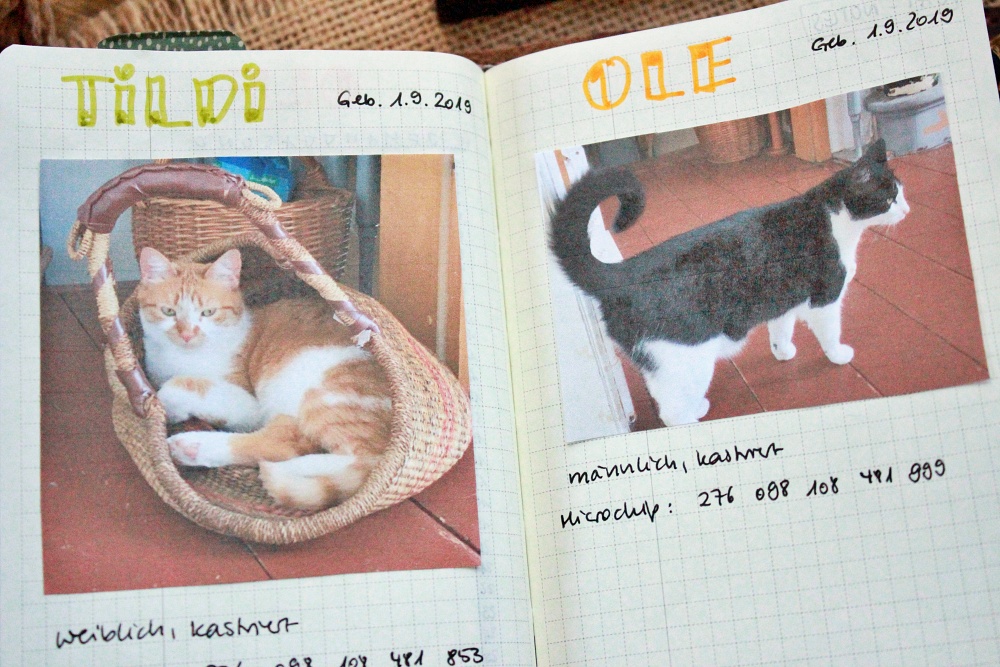 TILDI
Geb. 1.9.2019
weiblich, kastriert
276 098 108 481 853
OLE
Geb. 1.9.2019
männlich, kastriert
Microchip: 276 098 108 481 999
NOTES